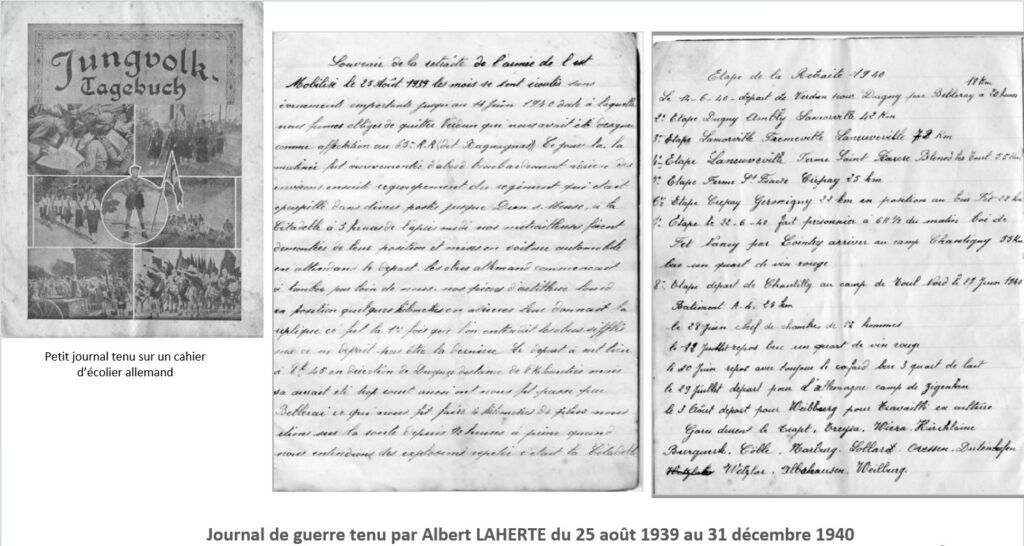 Jungvolk-
Tagebuch
Petit journal tenu sur un cahier
d'écolier allemand
Souvenir de la retraite de l'armée de l'est
Mobilisé le 25 Août 1939 les mois se sont écoulés sans
évènements importants jusqu'au 14 Juin 1940 date à laquelle
nous fumes obligés de quitter Verdun qui nous avait été désigné
comme affectation au
matinée fut mouvementée d'abord bombardement aérien des
environs ensuite regroupement du régiment qui était
éparpillé dans divers postes jusque Dun s. Meuse, à la
Citadelle à 3 heures de l'après midi nos mitrailleuses furent
démontées de leur position et mises en voiture automobile
en attendant le départ. les obus allemand commençait
à tomber pas loin de nous. nos pièces d'artillerie lourd
en position quelques kilomètres en arrières leur donnant la
réplique ce fut la 1re fois que l'on entendait les obus siffler
mais ce ne devait pas être la dernière. Le départ a eut lieu
à 8h 45 en direction de Dugny distance de 6 kilomètres mais
sa aurait été trop court aussi ont nous fit passé par
Belleray ce qui nous fit faire kilomètres de plus nous
étions sur la route depuis heures à peine quand
nous entendîmes des explosions répété c'était la Citadelle
Etape de la Retraite 1940
18 Km
Le 14-6-40 - départ de Verdun pour Dugny par Belleray à 20 heures
2e Etape Dugny Ambly Lamorville 42 Km
3e Etape Lamorville Laneuveville Km
4e Etape Laneuveville Ferme Saint Blenod les Toul
5e Etape Ferme St Crépay 25 km
6e Etape Crepay Germigny 22 km en position au bois
7e Etape le 22-6-40 fait prisonnier à du matin bois de
Nancy par arriver au camp Chantigny
bu un quart de vin rouge
8e Etape départ de Chantilly au camp de Toul Nord le Juin 1940
Batiment 25 Km
le 28 Juin chef de chambre de 52 hommes
le Juillet repos bu un quart de vin rouge
le 30 Juin repos avec toujour le cafard bu 3 quart de lait
le 29 Juillet départ pour l'allemagne camp de Zigenhen
le 3 Août départ pour Weilburg pour travaillé en culture
Gares durent le trajet. Treysa. Wiera. Kirchlaine
Cölbe. Marburg. Lollard. Dutenhofen
Wetzlar. Albshausen. Weilburg.
Journal de guerre tenu par Albert LAHERTE du 25 août 1939 au 31 décembre 1940